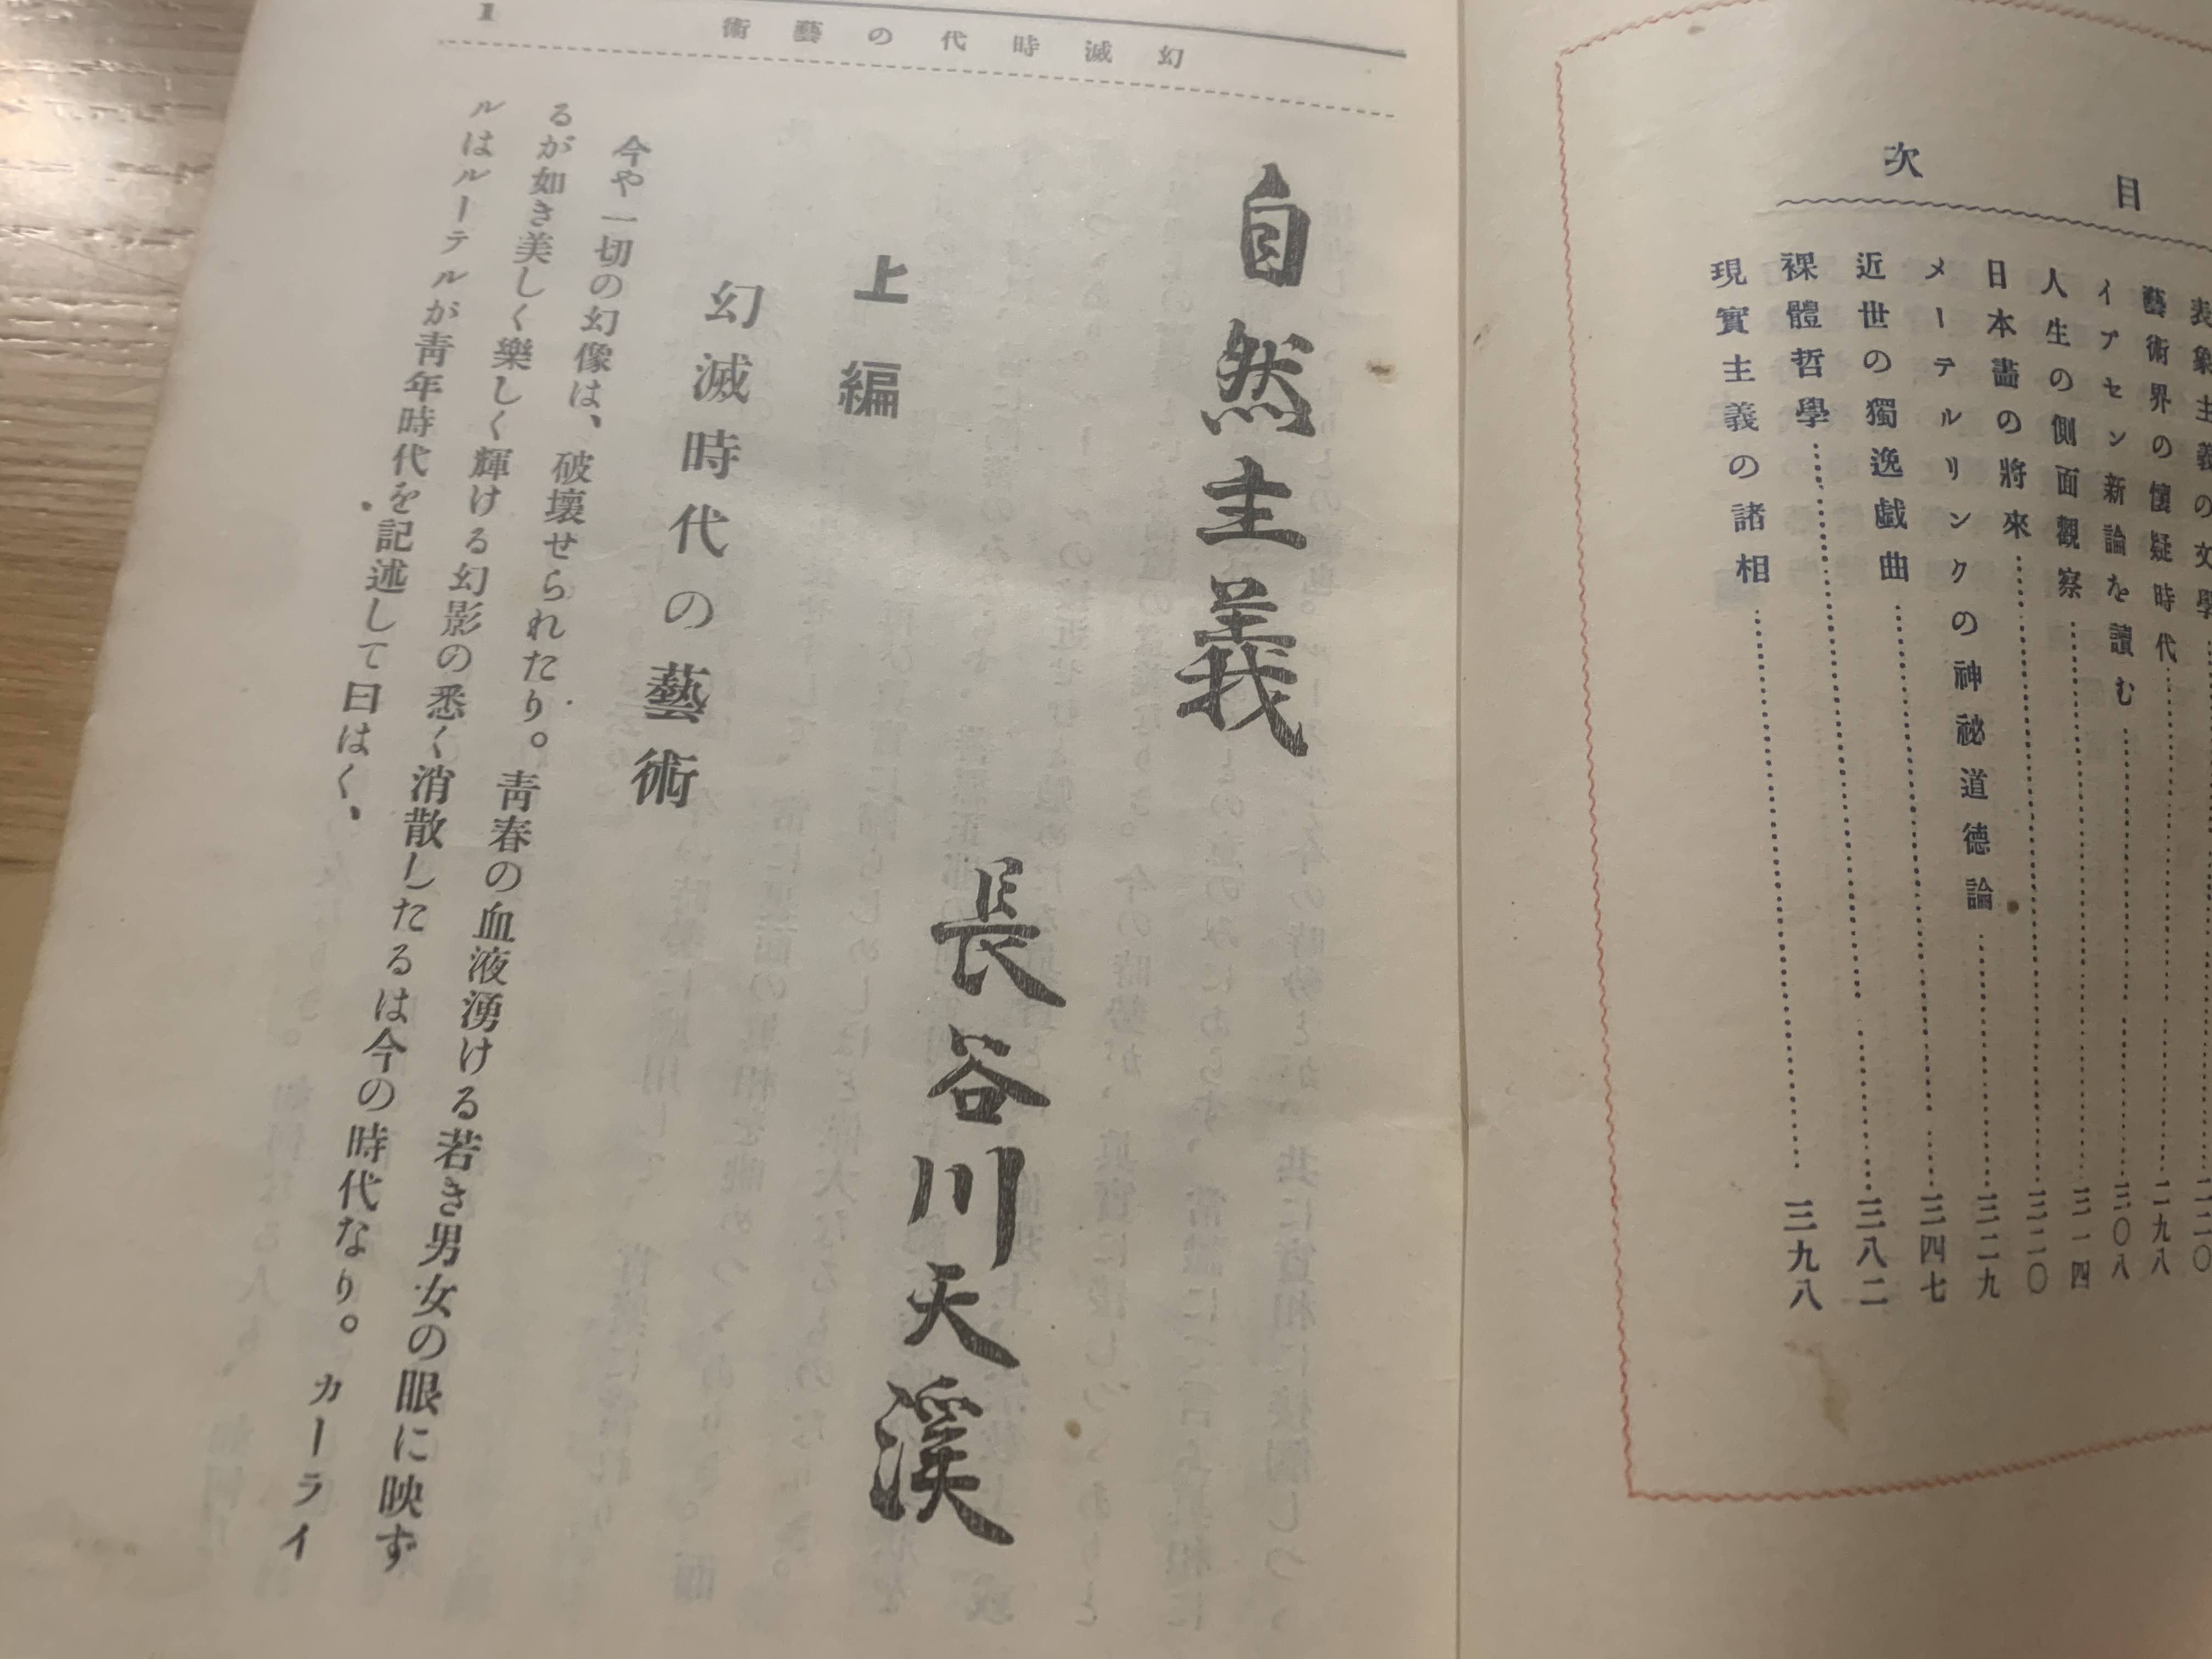 目次
表象主義の文學
二二〇
藝術界の懷疑時代
二九八
イプセン新論を讀む
三〇八
人生の側面觀察
三一四
日本畵の將來
三二〇
メーテルリンクの神祕道德論
三二九
近世の獨逸戯曲
三四七
裸體哲學
三八二
現實主義の諸相
三九八
幻滅時代の藝術
1
自然主義
長谷川天溪
上編
幻滅時代の藝術
今や一切の幻像は、破壞せられたり。靑春の血液湧ける若き男女の眼に映ず
るが如き美しく樂しく輝ける幻影の悉く消散したるは今の時代なり。カーライ
ルはルーテルが靑年時代を記述して曰はく、